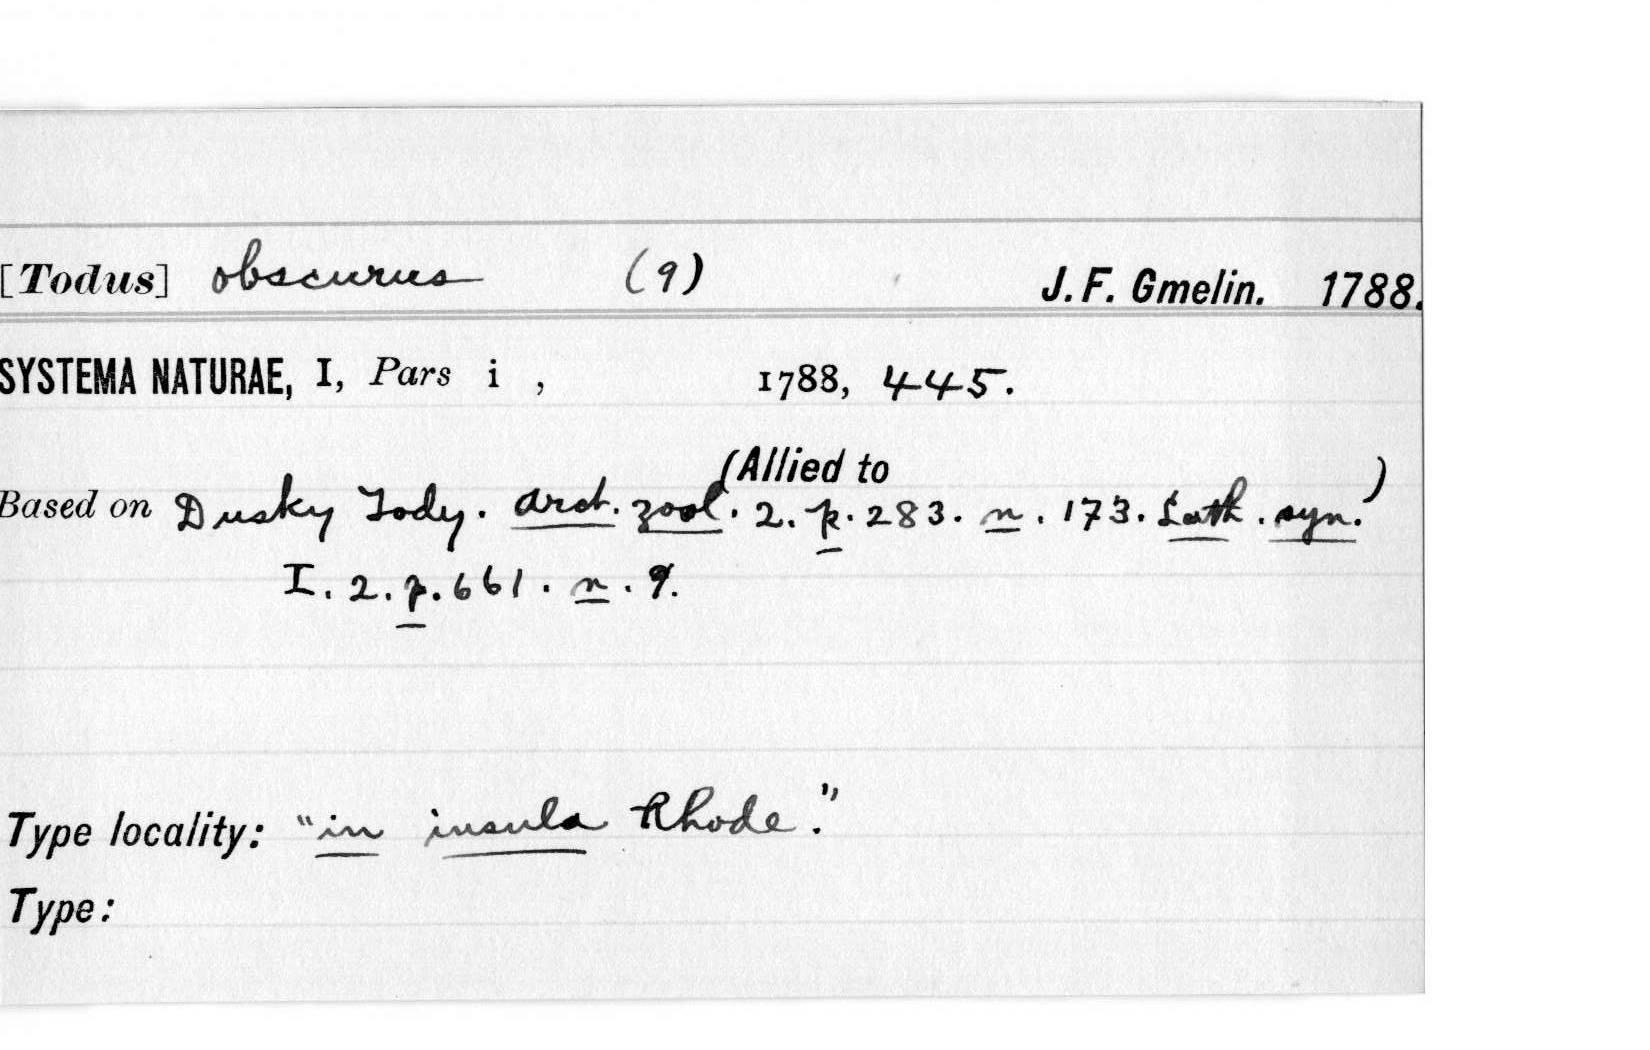 [Todus] obscurus (9) J. F. Gmelin. 1788.
SYSTEMA NATURAE, I, Pars i , 1788, 445.
(Allied to
Based on Dusky Tody. Arct. zool. 2. p. 283. n. 173. Lath. syn.)
I. 2. p. 661. n. 9.
Type locality: "in insula Rhode."
Type: